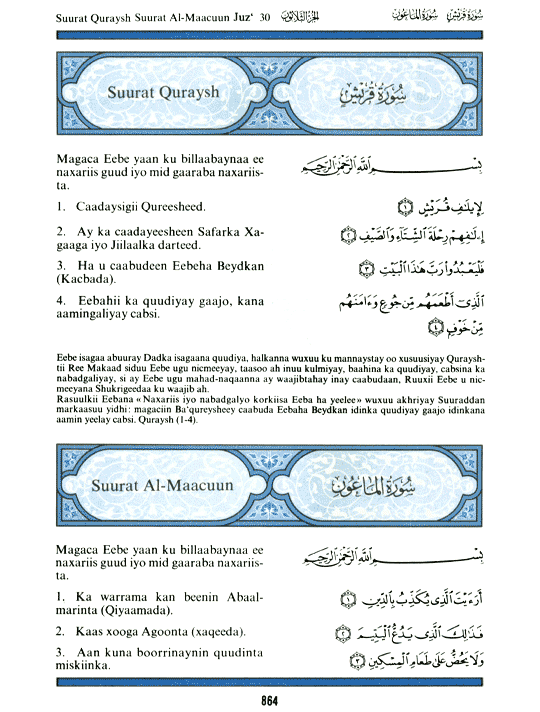 Suurat Quraysh Suurat Al-Maacuun Juz' 30 الجزء الثلاثون سورة الماعون سورة قريش
Suurat Quraysh سُورَةُ قُرَيْشٍ
Magaca Eebe yaan ku billaabaynaa ee
naxariis guud iyo mid gaaraba naxariis-
ta.
بِسْمِ اللَّهِ الرَّحْمَٰنِ الرَّحِيمِ
1. Caadaysigii Qureesheed.
لِإِيلَٰفِ قُرَيْشٍ ١
2. Ay ka caadayeesheen Safarka Xa-
gaaga iyo Jiilaalka darteed.
إِۦلَٰفِهِمْ رِحْلَةَ ٱلشِّتَآءِ وَٱلصَّيْفِ ٢
3. Ha u caabudeen Eebeha Beydkan
(Kacbada).
فَلْيَعْبُدُوا۟ رَبَّ هَٰذَا ٱلْبَيْتِ ٣
4. Eebahii ka quudiyay gaajo, kana
aamingaliyay cabsi.
ٱلَّذِىٓ أَطْعَمَهُم مِّن جُوعٍ وَءَامَنَهُم
مِّنْ خَوْفٍۭ ٤
Eebe isagaa abuuray Dadka isagaana quudiya, halkanna wuxuu ku mannaystay oo xusuusiyay Quraysh-
tii Ree Makaad siduu Eebe ugu nicmeeyay, taasoo ah inuu kulmiyay, baahina ka quudiyay, cabsina ka
nabadgaliyay, si ay Eebe ugu mahad-naqaanna ay waajibtahay inay caabudaan, Ruuxii Eebe u nic-
meeyana Shukrigeedaa ku waajib ah.
Rasuulkii Eebana «Naxariis iyo nabadgalyo korkiisa Eeba ha yeelee» wuxuu akhriyay Suuraddan
markaasuu yidhi: magaciin Ba'qureysheey caabuda Eebaha Beydkan idinka quudiyay gaajo idinkana
aamin yeelay cabsi. Quraysh (1-4).
Suurat Al-Maacuun سُورَةُ المَاعُونِ
Magaca Eebe yaan ku billaabaynaa ee
naxariis guud iyo mid gaaraba naxariis-
ta.
بِسْمِ اللَّهِ الرَّحْمَٰنِ الرَّحِيمِ
1. Ka warrama kan beenin Abaal-
marinta (Qiyaamada).
أَرَءَيْتَ ٱلَّذِى يُكَذِّبُ بِٱلدِّينِ ١
2. Kaas xooga Agoonta (xaqeeda).
فَذَٰلِكَ ٱلَّذِى يَدُعُّ ٱلْيَتِيمَ ٢
3. Aan kuna boorrinaynin quudinta
miskiinka.
وَلَا يَحُضُّ عَلَىٰ طَعَامِ ٱلْمِسْكِينِ ٣
864